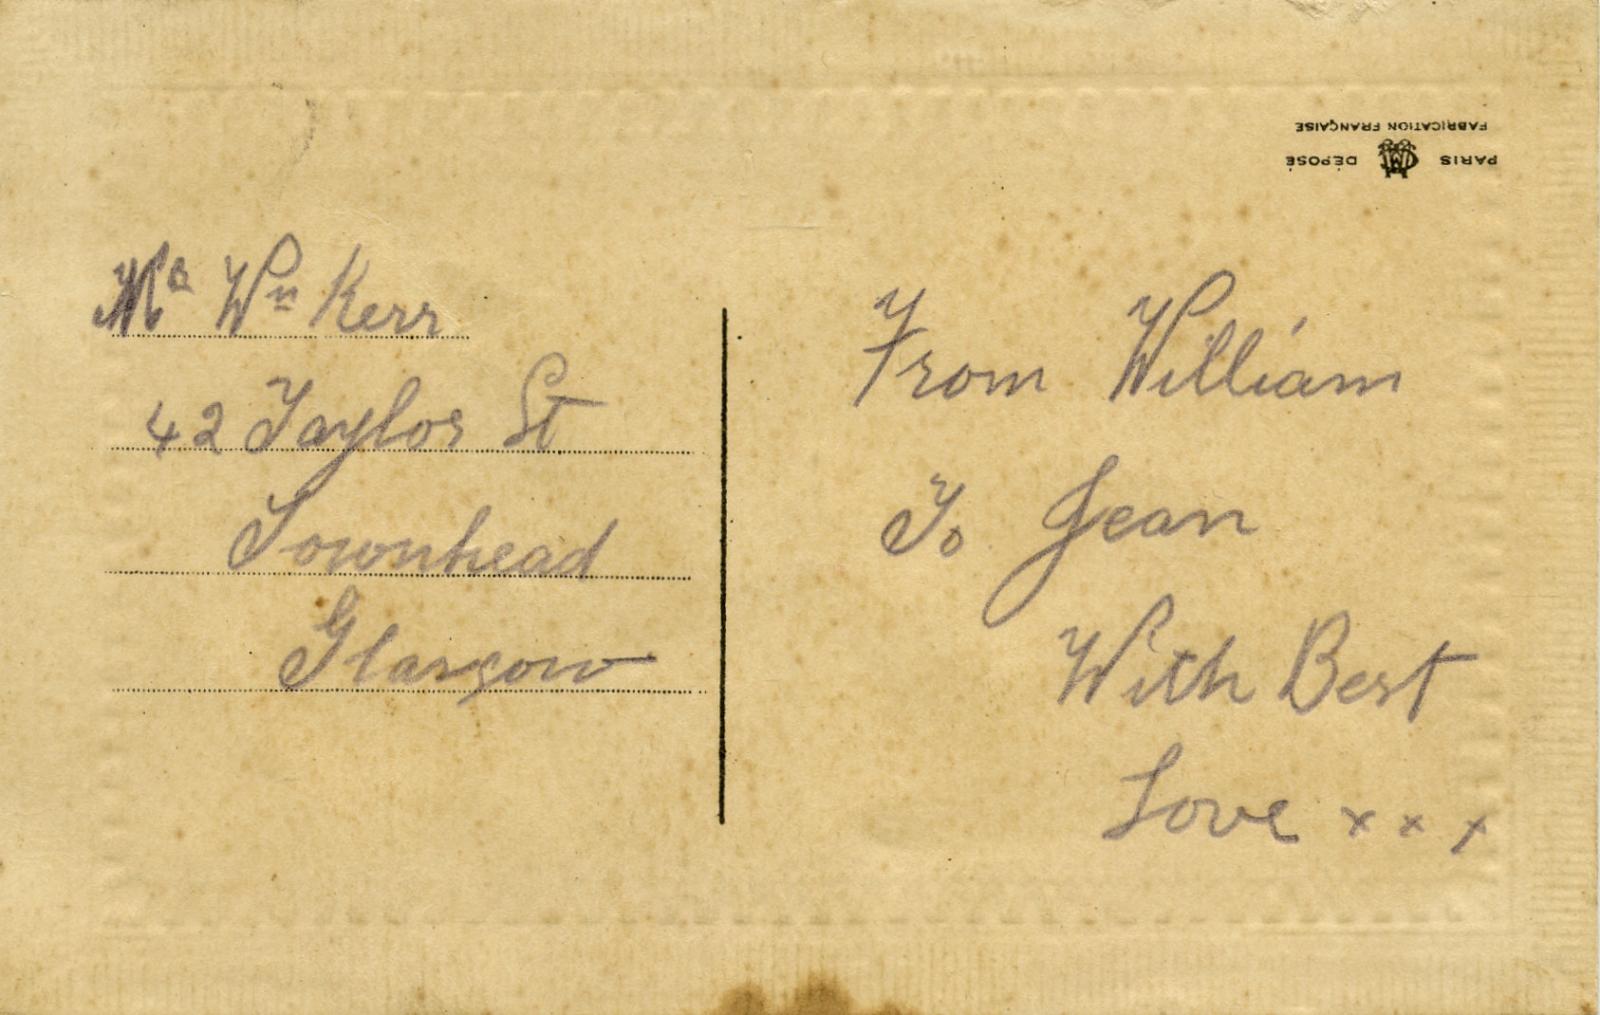 Mrs Wm Kerr
42 Taylor St
Townhead
Glasgow
From William
To Jean
With Best
Love x x x
FABRICATION FRANÇAISE
PARIS DÉPOSÉ